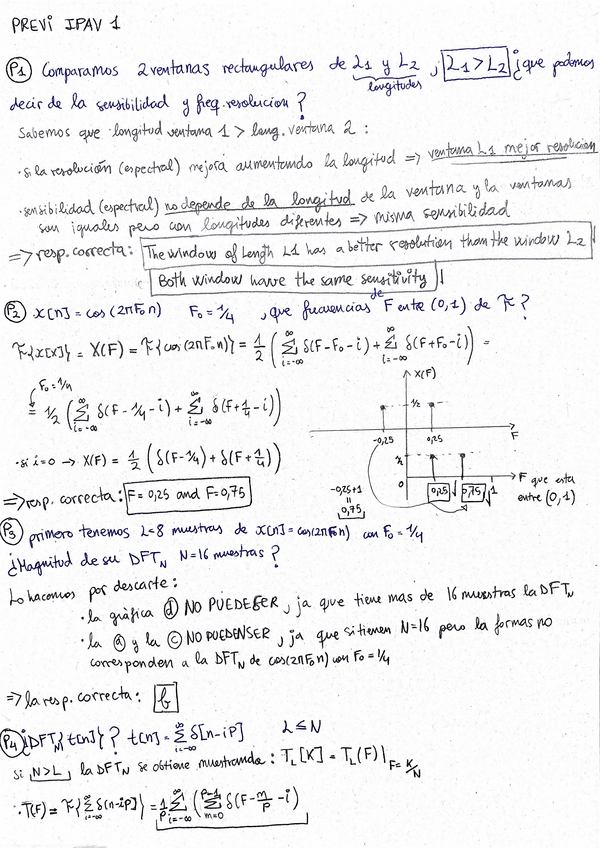 PREVI IPAV 1
P1 Comparamos 2 ventanas rectangulares de L1 y L2, L1 > L2 ¿que podemos
longitudes
decir de la sensibilidad y freq. resolucion?
Sabemos que longitud ventana 1 > long. ventana 2 :
· si la resolución (espectral) mejora aumentando la longitud => ventana L1 mejor resolucion
· sensibilidad (espectral) no depende de la longitud de la ventana y la ventanas
son iguales pero con longitudes diferentes => misma sensibilidad
=> resp. correcta: The window of Length L1 has a better resolution than the window L2
Both window have the same sensitivity
P2 x[n] = cos(2πF₀n) F₀ = 1/4 , que frecuencias de F entre (0,1) de F ?
F{x[x]} = X(F) = F{cos(2πF₀n)} = 1/2 (∑_{i=-∞}^{∞} δ(F-F₀-i) + ∑_{i=-∞}^{∞} δ(F+F₀-i)) =
F₀=1/4
= 1/2 (∑_{i=-∞}^{∞} δ(F-1/4-i) + ∑_{i=-∞}^{∞} δ(F+1/4-i))
X(F)
1/2
-0,25 0,25 F
· si i=0 → X(F) = 1/2 (δ(F-1/4) + δ(F+1/4))
1/2
0 0,25 0,75 1 F que esta
entre (0,1)
-0,25+1
=
0,75
=> resp. correcta: F=0,25 and F=0,75
P3 primero tenemos L=8 muestras de x[n]=cos(2πF₀n) con F₀=1/4
¿Magnitud de su DFT_N N=16 muestras?
Lo hacemos por descarte:
· la gráfica d NO PUEDE SER, ja que tiene mas de 16 muestras la DFT_N
· la a y la c NO PUEDEN SER, ja que si tienen N=16 pero la formas no
corresponden a la DFT_N de cos(2πF₀n) con F₀=1/4
=> la resp. correcta: b
P4 ¿DFT_N{t[n]}? t[n]=∑_{i=-∞}^{∞} δ[n-iP] L≤N
si N>L, la DFT_N se obtiene muestrando: T_L[K] = T_L(F)|_{F=K/N}
· T(F) = F{∑_{i=-∞}^{∞} δ[n-iP]} = 1/P ∑_{i=-∞}^{∞} (∑_{m=0}^{P-1} δ(F-m/P-i)